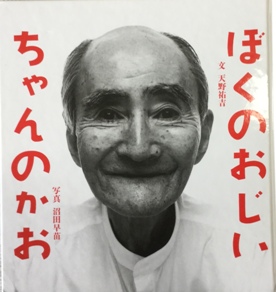 ぼくのおじい
ちゃんのかお
文 天野祐吉
写真 沼田早苗